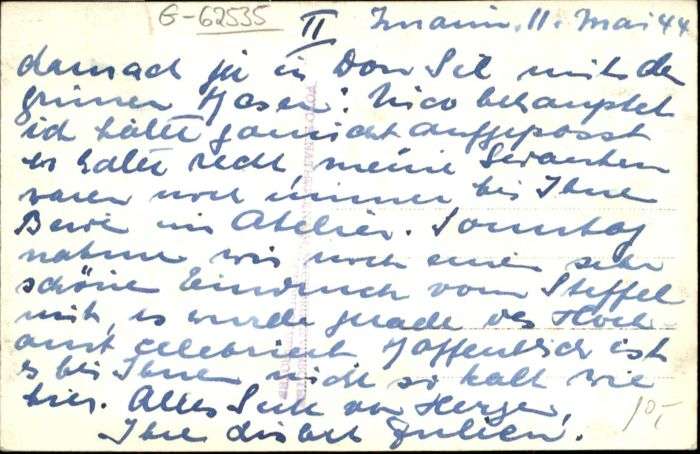 G-62535 II 11. Mai 44
darnach ja in Don Sil mit den
grünen Hosen! Nico behauptet
ich hätte garnicht aufgepasst
er hatte recht, meine Gedanken
waren noch immer bei Ihnen
im Atelier. Sonntag
nahmen wir noch einen sehr
schönen Eindruck vom Steffel
mit, es wurde gerade das Hoch-
amt celebriert. Hoffentlich ist
es bei Ihnen nicht so kalt wie
hier. Alles Gute von Herzen,
Ihre
10,-